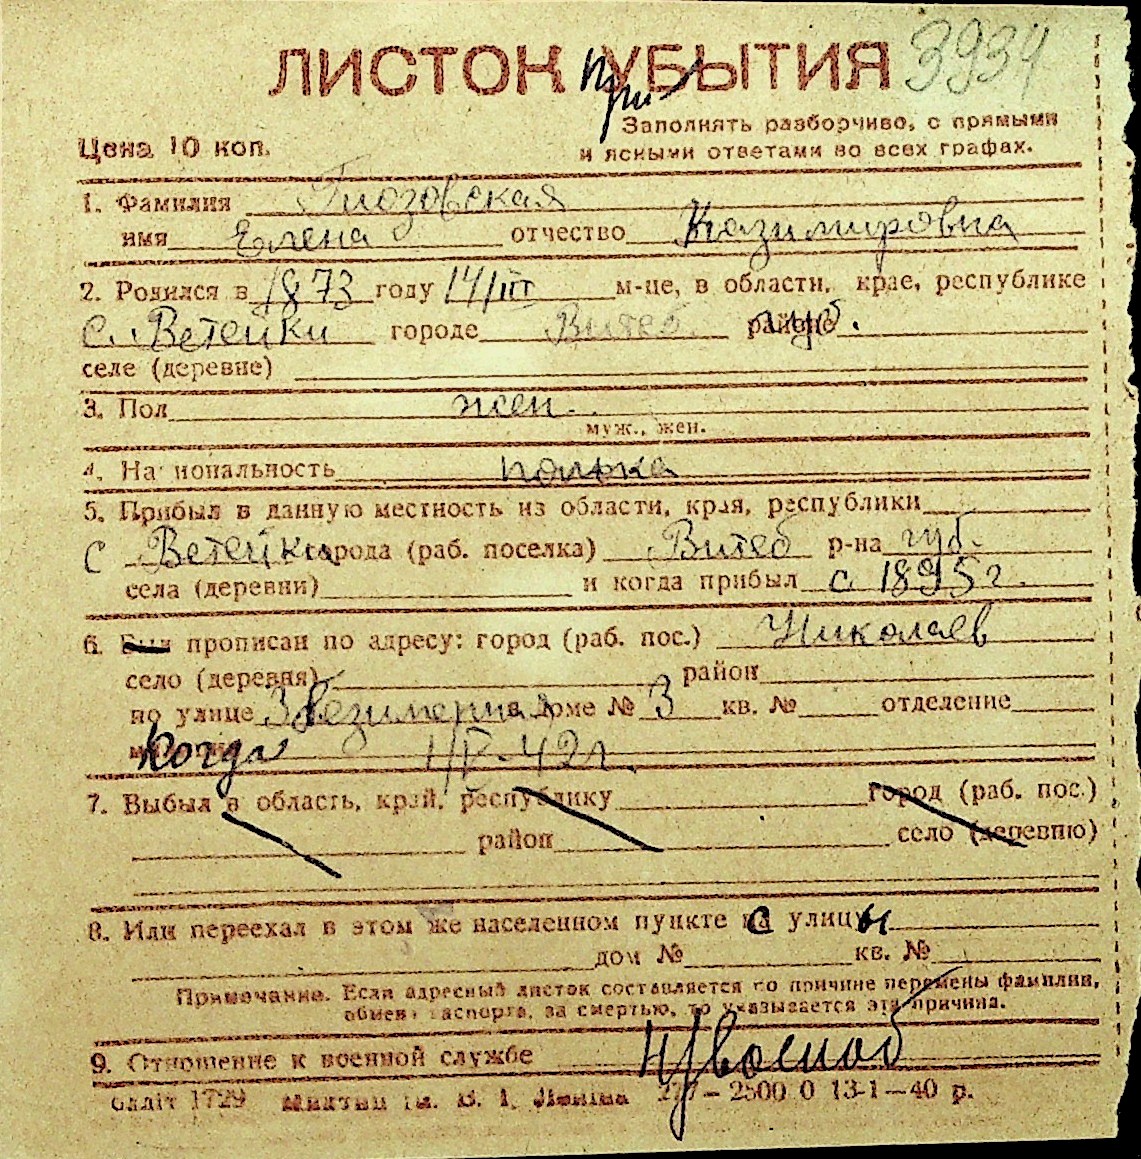 ЛИСТОК УБЫТИЯ 3934
При
Заполнять разборчиво, с прямыми
Цена 10 коп. и ясными ответами во всех графах.
1. Фамилия Гиозовская
имя Елена отчество Казимировна
2. Родился в 1873 году 14/III м-це, в области, крае, республике
с. Ветейки городе Витеб. районе губ.
селе (деревне)
3. Пол жен.
муж., жен.
4. На иональность полька
5. Прибыл в данную местность из области, края, республики
с Ветейки города (раб. поселка) Витеб р-на губ.
села (деревни) и когда прибыл с 1895 г.
6. Был прописан по адресу: город (раб. пос.) Николаев
село (деревня) район
по улице 3 в доме № 3 кв. № отделение
Когда 42 г.
7. Выбыл в область, край, республику город (раб. пос.)
район село (деревню)
8. Или переехал в этом же населенном пункте с улицы
дом № кв. №
Примечание. Если адресный листок составляется по причине перемены фамилии,
обмена паспорта, за смертью, то указывается эта причина.
9. Отношение к военной службе н/военноб
блліт 1729 им. В. І. Леніна 277–2500 0 13-1–40 р.